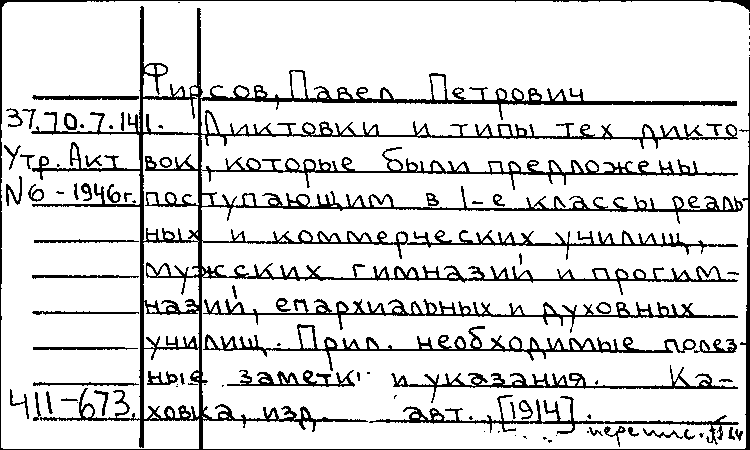 Фирсов, Павел Петрович
37.70.7.141. Диктовки и типы тех дикто-
Утр. Акт вок, которые были предложены
N6-1946г. поступающим в I-е классы реаль-
ных и коммерческих училищ,
мужских гимназий и прогим-
назий, епархиальных и духовных
училищ. Прил. необходимые полез-
ные заметки и указания. Ка-
411-673. ховка, изд. авт., [1914].
перепис.